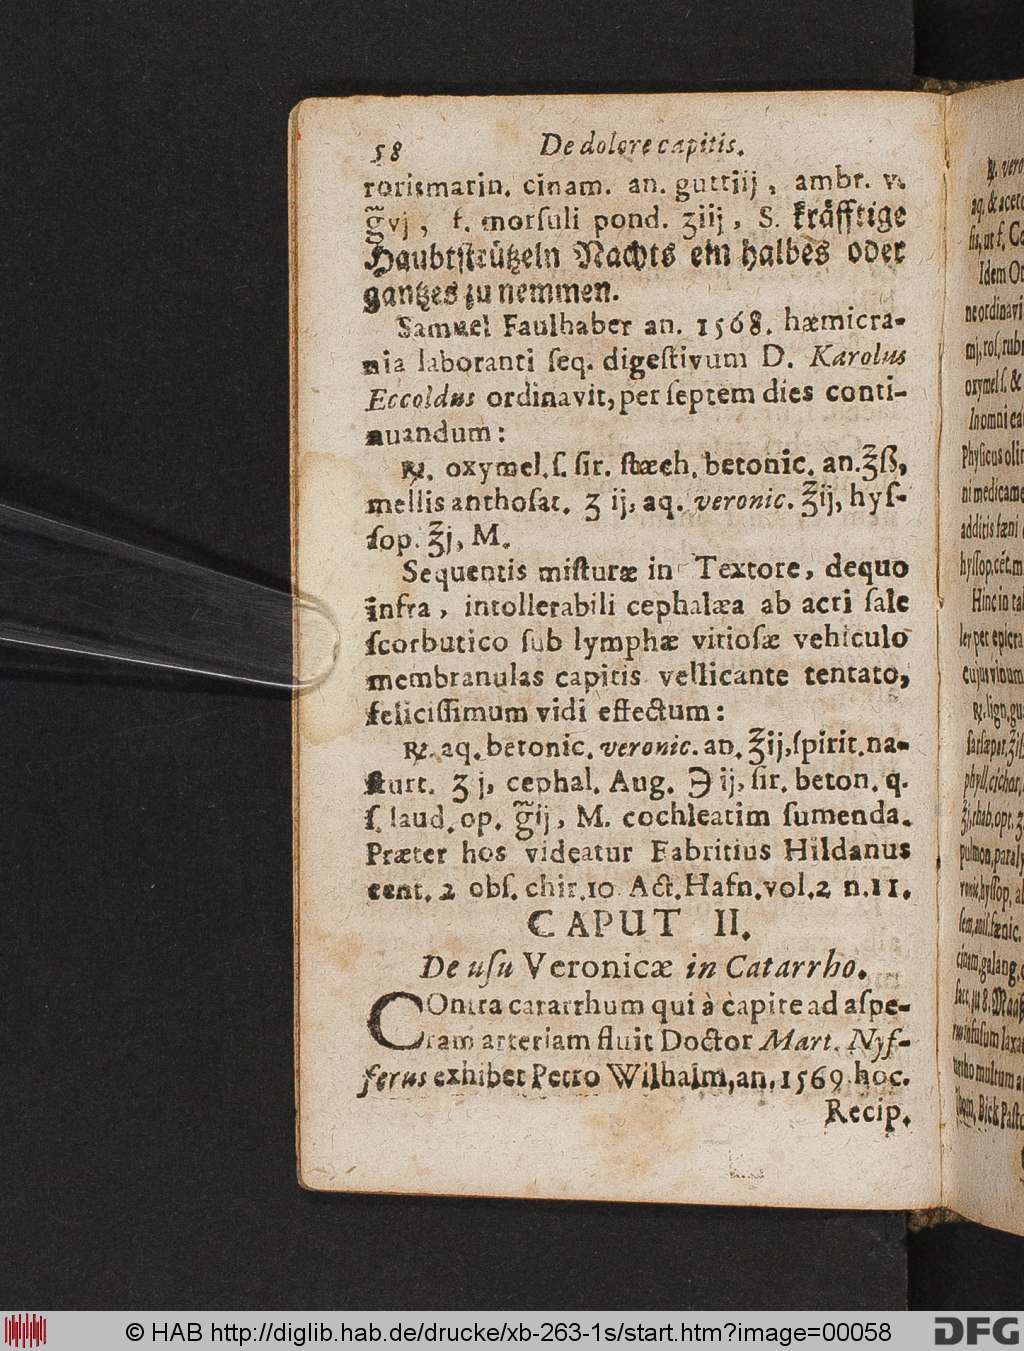 58 De dolore capitis.
rorismarin. cinam. an. guttiij, ambr. v.
g̃vj, f. morſuli pond. ʒiij, S. kräfftige
Haubtſtrützeln Nachts ein halbes oder
gantzes zu nemmen.
Samuel Faulhaber an. 1568. hæmicra-
nia laboranti ſeq. digeſtivum D. Karolus
Eccoldus ordinavit, per ſeptem dies conti-
nuandum:
℞. oxymel. ſ. ſir. ſtæch. betonic. an. ℥ß,
mellis anthoſat. ʒ ij, aq. veronic. ℥ij, hyſ-
ſop. ℥j, M.
Sequentis miſturæ in Textore, dequo
infra, intollerabili cephalæa ab acri ſale
ſcorbutico ſub lymphæ vitioſæ vehiculo
membranulas capitis vellicante tentato,
feliciſſimum vidi effectum:
℞. aq. betonic. veronic. an. ℥ij, ſpirit. na-
ſturt. ʒ j, cephal. Aug. ℈ ij, ſir. beton. q.
ſ. laud. op. g̃ij, M. cochleatim ſumenda.
Præter hos videatur Fabritius Hildanus
cent. 2 obſ. chir. 10. Act. Hafn. vol. 2 n. 11.
CAPUT II.
De uſu Veronicæ in Catarrho.
COntra catarrhum qui à capite ad aſpe-
ram arteriam fluit Doctor Mart. Nyf-
ferus exhibet Petro Wilhalm, an. 1569 hoc.
Recip.
℞. vero
aq. & aceto
Idem
ne ordinavi
oxymel ſ. &
In omni
Phyſicus olim
ni medicame
additis fæni
hyſſop. cët. m
Hinc in
ley per epicra
cujus vinum
℞. lign. gu
© HAB http://diglib.hab.de/drucke/xb-263-1s/start.htm?image=00058
DFG